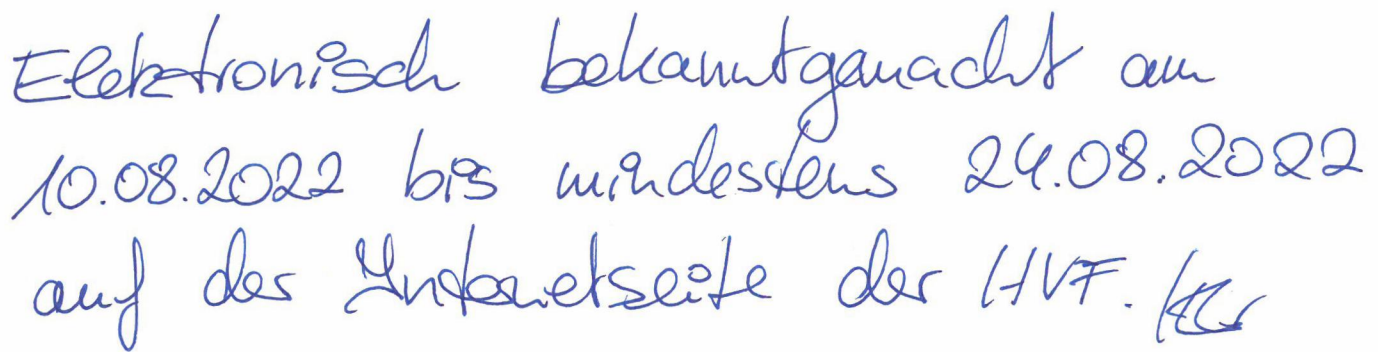 Elektronisch bekanntgemacht am
10.08.2022 bis mindestens 24.08.2022
auf der Internetseite der HVF.